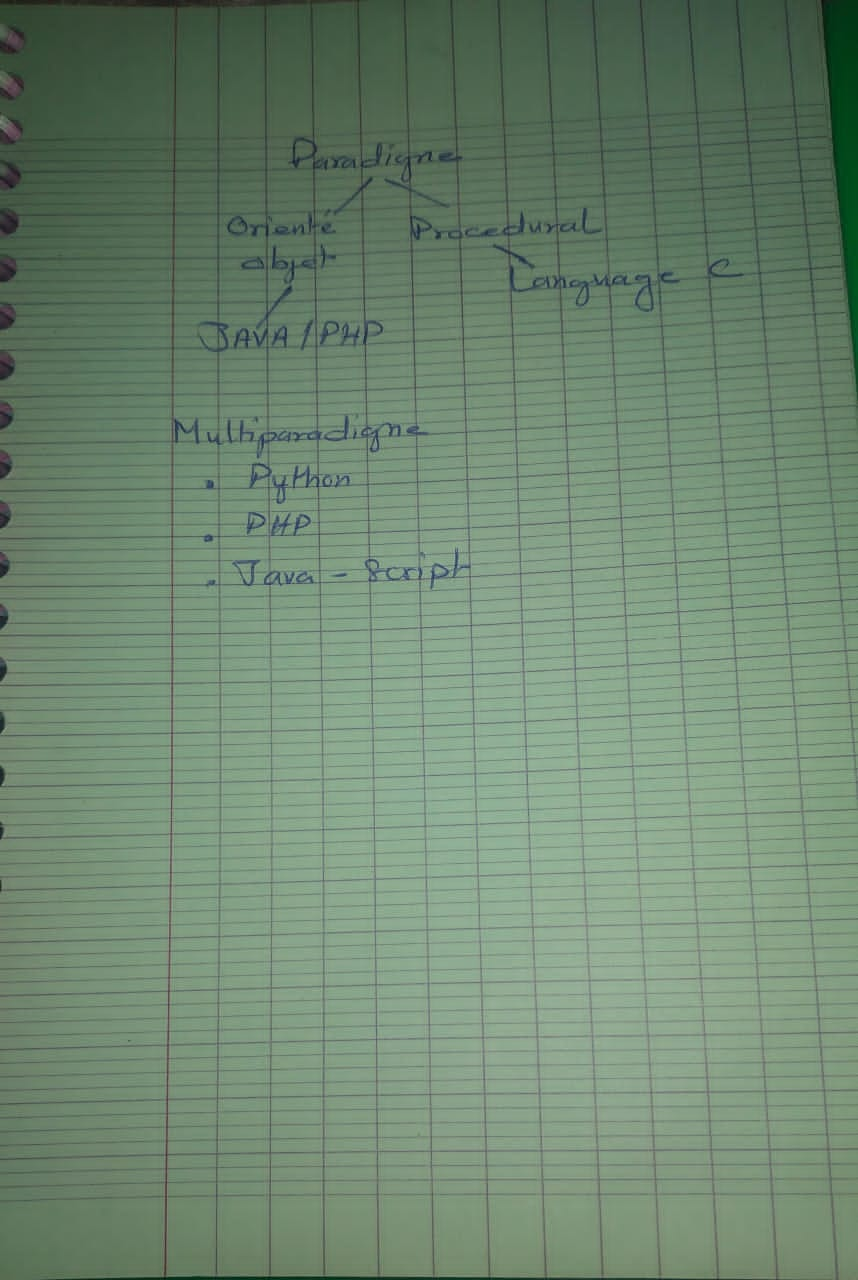 Paradigne
Orienté Procedural
objet
Language C
JAVA / PHP
Multiparadigne
• Python
• PHP
• Java - Script